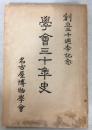 創立三十週年記念
學會三十年史
名古屋博物學會